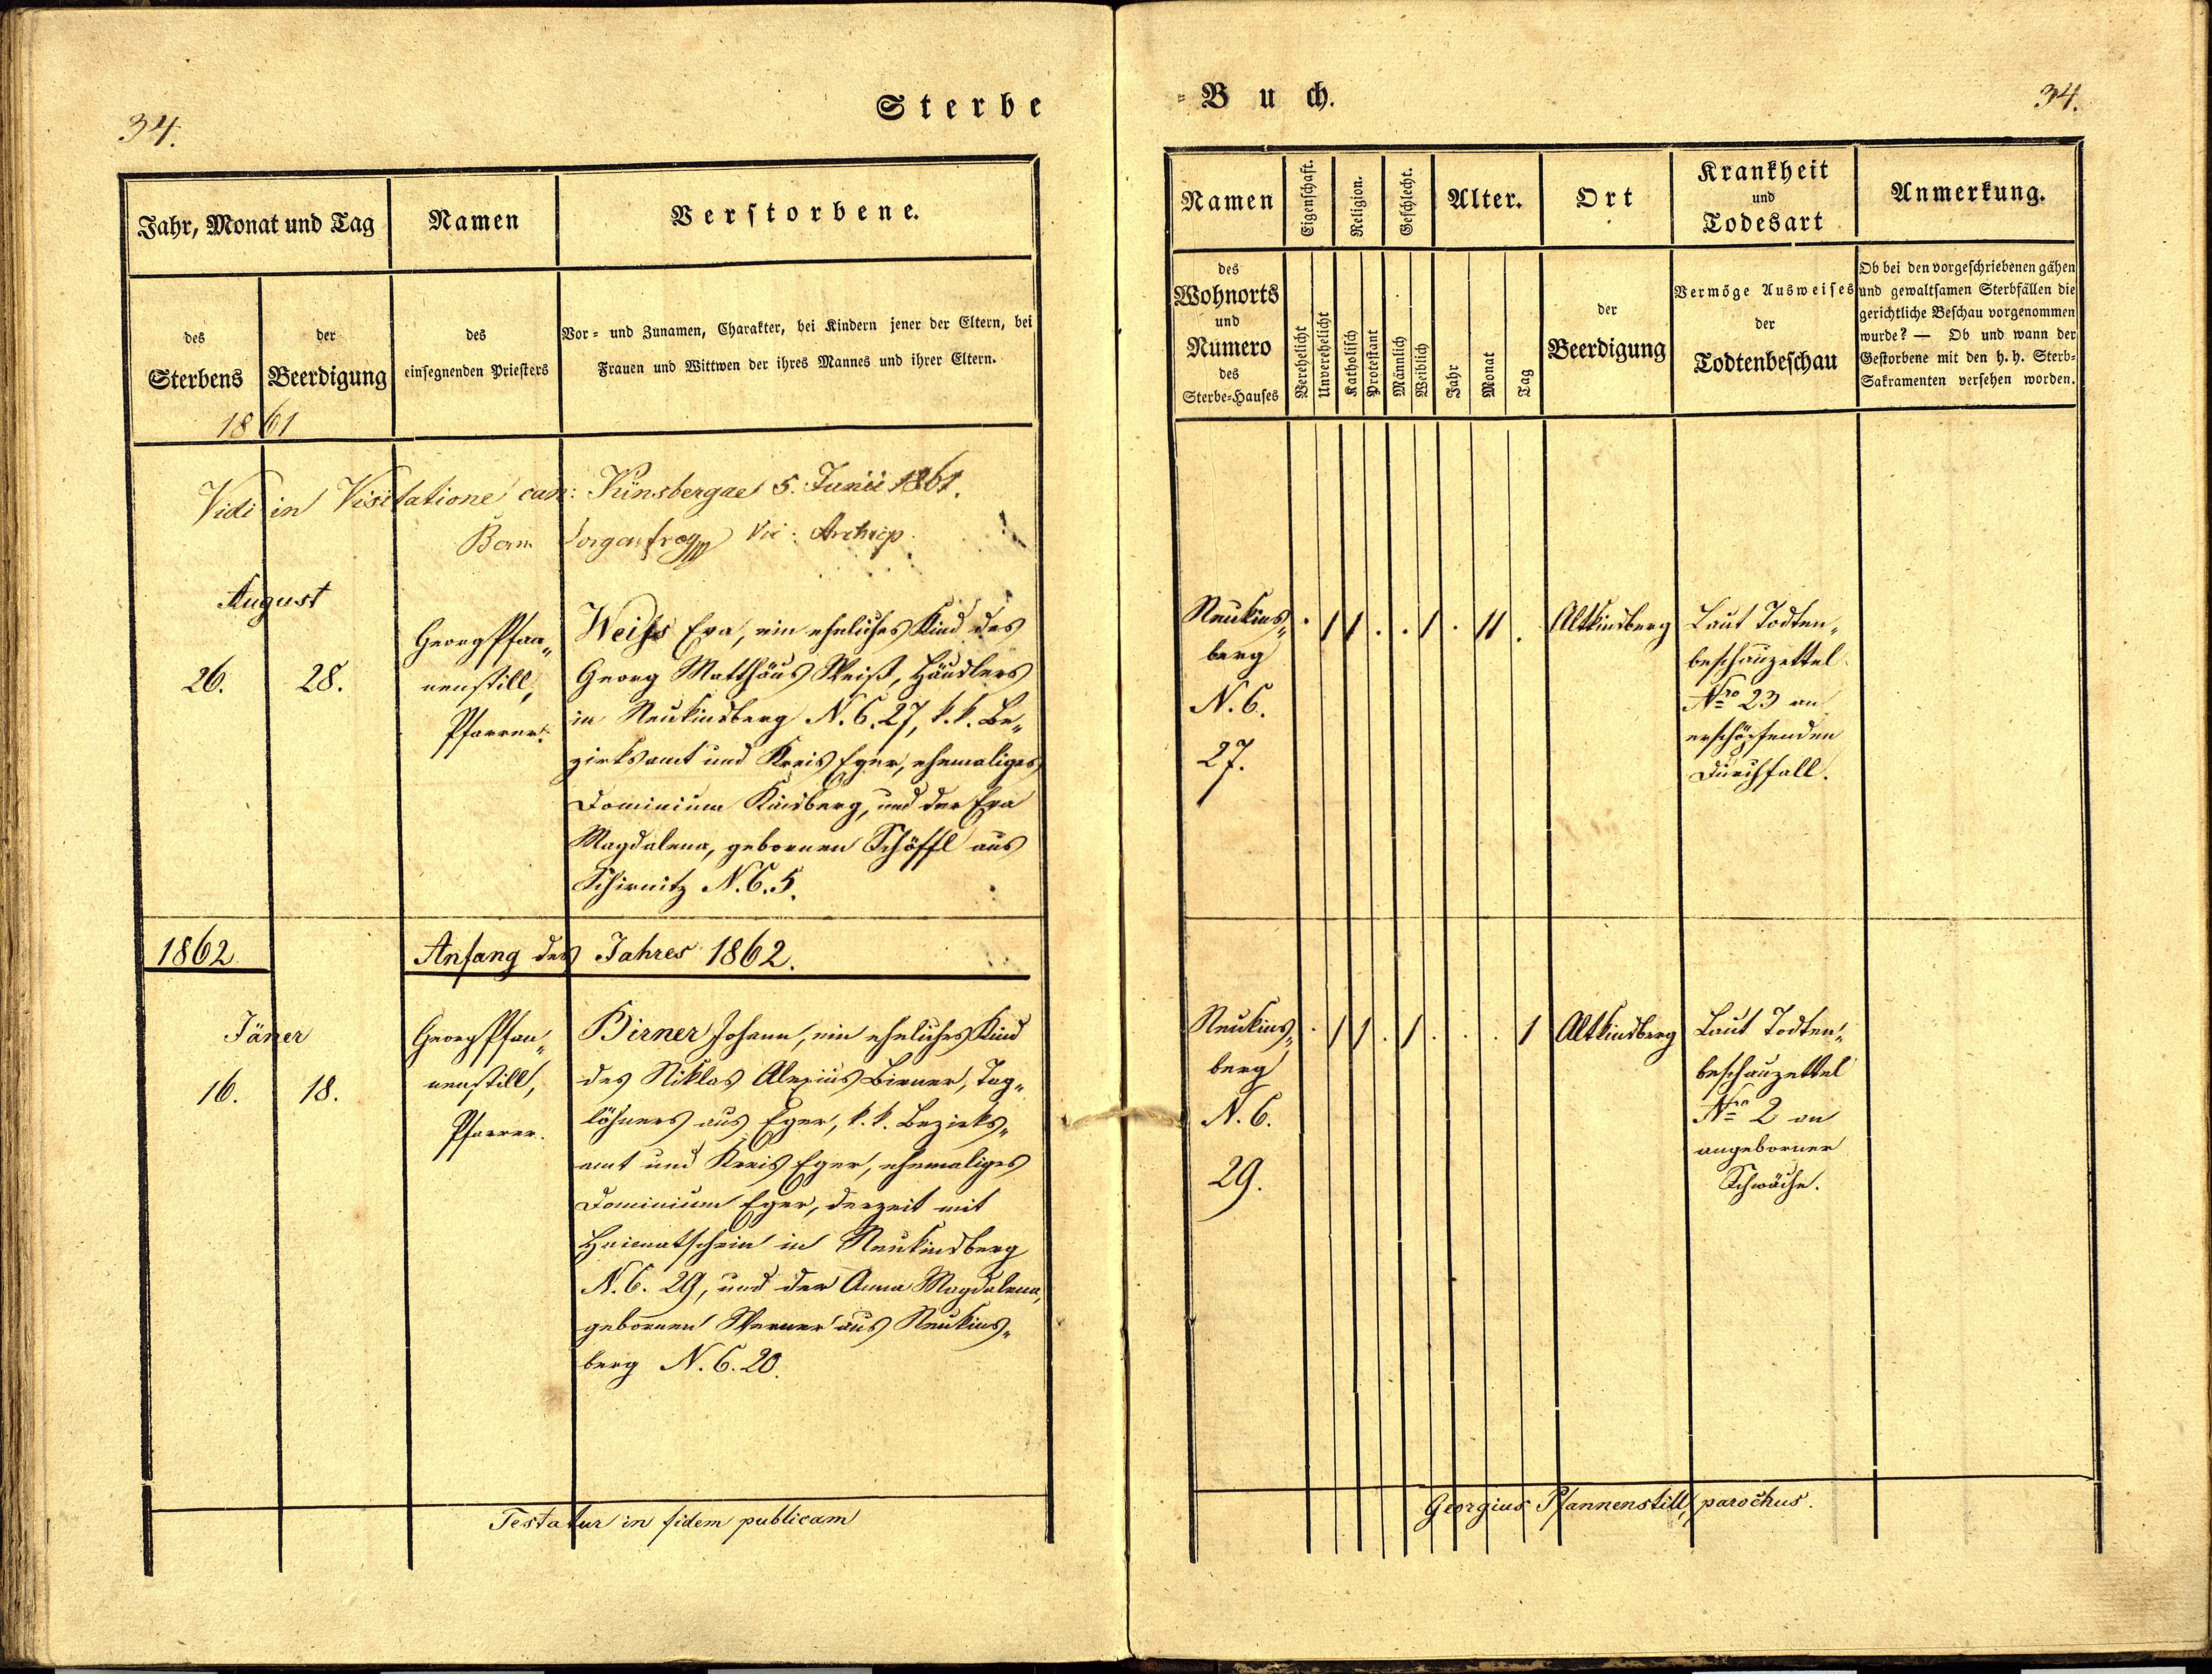 34.
Sterbe
Jahr, Monat und Tag
Namen
Verstorbene.
des
Sterbens
der
Beerdigung
des
einsegnenden Priesters
Vor- und Zunamen, Charakter, bei Kindern jener der Eltern, bei
Frauen und Wittwen der ihres Mannes und ihrer Eltern.
1861
Vidi in Visitatione can: Künsbergae 5. Junii 1861.
Vic: Archiep.
August
26.
28.
Georg Pfan„
nenstill,
Pfarrer.
Weiß Eva, ein eheliches Kind des
Georg Matthäus Weiß, Händlers
in Neukinsberg N. C. 27, k. k. Be„
zirksamt und Kreis Eger, ehemaliges
Dominium Kinsberg, und der Eva
Magdalena, gebornen Schöffl aus
Schirnitz N. C. 5.
1862
Anfang des Jahres 1862.
Jäner
16.
18.
Georg Pfan„
nenstill,
Pfarrer.
Birner Johann, ein eheliches Kind
des Niklas Alexius Birner, Tag„
löhners aus Eger, k. k. Bezirks„
amt und Kreis Eger, ehemaliges
Dominium Eger, derzeit mit
Heimatschein in Neukinsberg
N. C. 29, und der Anna Magdalena,
gebornen Werner aus Neukins„
berg N. C. 20.
Testatur in fidem publicam
=Buch.
34.
Namen
Eigenschaft.
Religion.
Geschlecht.
Alter.
Ort
Krankheit
und
Todesart
Anmerkung.
des
Wohnorts
und
Numero
des
Sterbe-Hauses
Verehelicht
Unverehelicht
Katholisch
Protestant
Männlich
Weiblich
Jahr
Monat
Tag
der
Beerdigung
Vermöge Ausweises
der
Todtenbeschau
Ob bei den vorgeschriebenen gähen
und gewaltsamen Sterbfällen die
gerichtliche Beschau vorgenommen
wurde? — Ob und wann der
Gestorbene mit den h. h. Sterb-
Sakramenten versehen worden.
Neukins„
berg
N. C.
27.
. 1 1 . . 1 . 11 .
Altkinsberg
Laut Todten„
beschauzettel
Nro 23 an
erschöpfenden
Durchfall.
Neukins„
berg
N. C.
29.
. 1 1 . 1 . . . 1
Altkinsberg
Laut Todten„
beschauzettel
Nro 2 an
angeborner
Schwäche.
Georgius Pfannenstill, parochus.